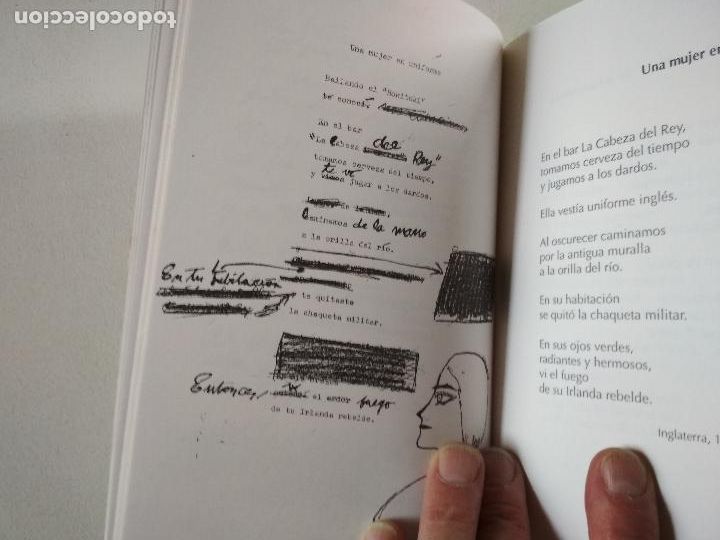 todocoleccion
Una mujer en uniforme
Bailando el
te conocí,
En el bar
"La Cabeza del Rey"
tomamos cerveza del tiempo,
y te vi jugar a los dardos.
Caminamos de la mano
a la orilla del río.
En tu habitación
te quitaste
la chaqueta militar.
Entonces, vi el fuego
de tu Irlanda rebelde.
Una mujer en
En el bar La Cabeza del Rey,
tomamos cerveza del tiempo
y jugamos a los dardos.
Ella vestía uniforme inglés.
Al oscurecer caminamos
por la antigua muralla
a la orilla del río.
En su habitación
se quitó la chaqueta militar.
En sus ojos verdes,
radiantes y hermosos,
vi el fuego
de su Irlanda rebelde.
Inglaterra, 1